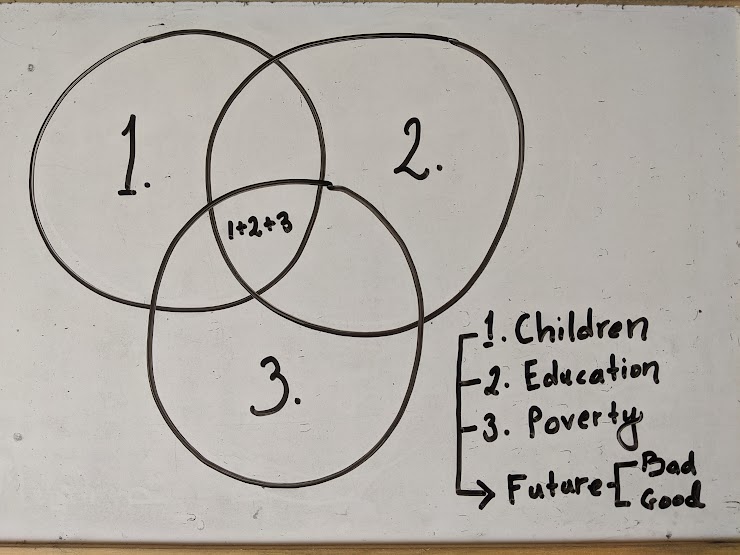 1.
2.
1+2+3
3.
1. Children
2. Education
3. Poverty
Future
Bad
Good